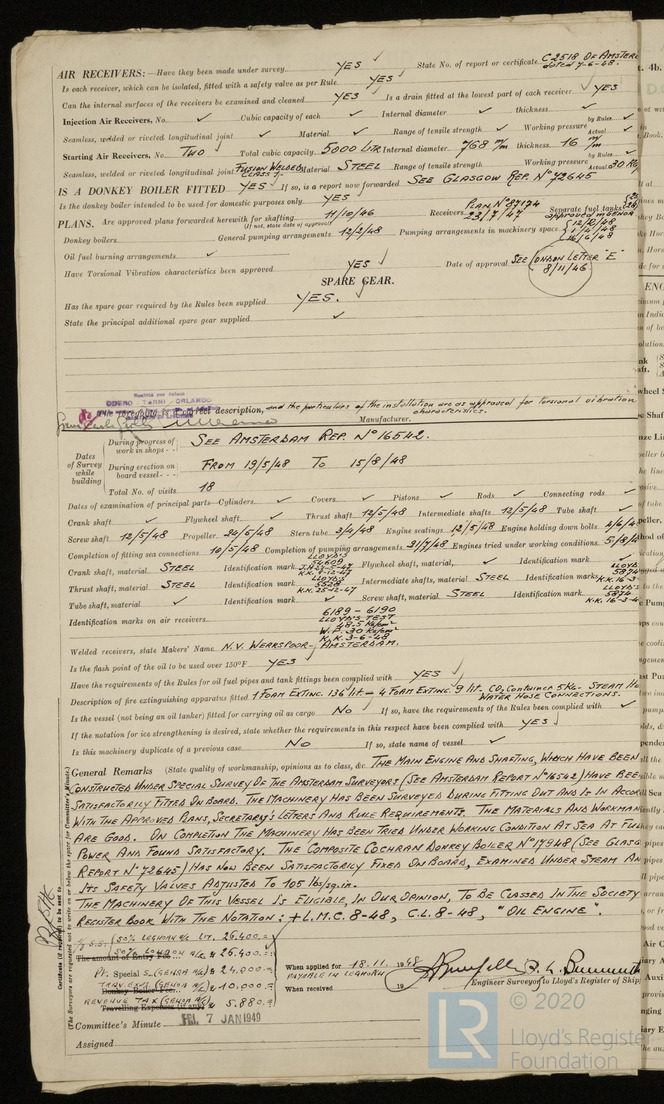 AIR RECEIVERS:—Have they been made under survey YES ✓ State No. of report or certificate C 2518 OF AMSTER
dated 7-6-48.
Is each receiver, which can be isolated, fitted with a safety valve as per Rule YES ✓
Can the internal surfaces of the receivers be examined and cleaned YES ✓ Is a drain fitted at the lowest part of each receiver ✓ YES
Injection Air Receivers, No. ✓ Cubic capacity of each ✓ Internal diameter ✓ thickness ✓
Seamless, welded or riveted longitudinal joint ✓ Material ✓ Range of tensile strength ✓ Working pressure by Rules ✓ Actual
Starting Air Receivers, No. TWO ✓ Total cubic capacity 5000 LITR Internal diameter 768 m/m thickness 16 m/m
Seamless, welded or riveted longitudinal joint FUSION WELDED CLASS 1 Material STEEL Range of tensile strength Working pressure by Rules ✓ Actual 30 Kg
IS A DONKEY BOILER FITTED YES ✓ If so, is a report now forwarded SEE GLASGOW REP. Nº 72645
Is the donkey boiler intended to be used for domestic purposes only YES ✓
PLANS. Are approved plans forwarded herewith for shafting 11/10/46 Receivers PLAN Nº 87174 23/7/47 Separate fuel tanks
(If not, state date of approval) approved in GENOA
Donkey boilers General pumping arrangements 12/2/48 Pumping arrangements in machinery space
Oil fuel burning arrangements ✓
Have Torsional Vibration characteristics been approved YES ✓ Date of approval SEE LONDON LETTER "E" 8/11/46
SPARE GEAR.
Has the spare gear required by the Rules been supplied YES. ✓
State the principal additional spare gear supplied ✓
ODERO TERNI ORLANDO
The foregoing is a correct description, and the particulars of the installation are as approved for torsional vibration
characteristics.
Manufacturer.
Dates of Survey while building
During progress of work in shops - - SEE AMSTERDAM REP. Nº 16542.
During erection on board vessel - - - FROM 19/5/48 TO 15/8/48
Total No. of visits 18
Dates of examination of principal parts—Cylinders ✓ Covers ✓ Pistons ✓ Rods ✓ Connecting rods ✓
Crank shaft ✓ Flywheel shaft ✓ Thrust shaft 12/5/48 Intermediate shafts 12/5/48 Tube shaft ✓
Screw shaft 12/5/48 Propeller 24/5/48 Stern tube 3/4/48 Engine seatings 12/5/48 Engine holding down bolts
Completion of fitting sea connections 10/5/48 Completion of pumping arrangements 31/7/48 Engines tried under working conditions 5/8/4
Crank shaft, material STEEL Identification mark LLOYD'S Flywheel shaft, material ✓ Identification mark ✓
Thrust shaft, material STEEL Identification mark LLOYD'S 5528 K.K. 25-12-47 Intermediate shafts, material STEEL Identification marks LLOYD'S 5874 K.K. 16-3-
Tube shaft, material ✓ Identification mark ✓ Screw shaft, material STEEL Identification mark LLOYD'S 5874 K.K. 16-3-4
Identification marks on air receivers 6189 - 6190
LLOYD'S TEST
48.5 Kg/cm²
W.P. 30 Kg/cm²
K.K. 3-6-48
Welded receivers, state Makers' Name N.V. WERKSPOOR - AMSTERDAM.
Is the flash point of the oil to be used over 150°F YES ✓
Have the requirements of the Rules for oil fuel pipes and tank fittings been complied with YES ✓
Description of fire extinguishing apparatus fitted 1 FOAM EXTINC. 136 lit - 4 FOAM EXTINC. 9 lit - CO₂ Container 5 Kg - STEAM
WATER HOSE CONNECTIONS.
Is the vessel (not being an oil tanker) fitted for carrying oil as cargo NO If so, have the requirements of the Rules been complied with ✓
If the notation for ice strengthening is desired, state whether the requirements in this respect have been complied with YES ✓
Is this machinery duplicate of a previous case NO If so, state name of vessel ✓
General Remarks (State quality of workmanship, opinions as to class, &c. THE MAIN ENGINE AND SHAFTING, WHICH HAVE BEEN
CONSTRUCTED UNDER SPECIAL SURVEY OF THE AMSTERDAM SURVEYORS (SEE AMSTERDAM REPORT Nº 16542) HAVE BEE
SATISFACTORILY FITTED ON BOARD. THE MACHINERY HAS BEEN SURVEYED DURING FITTING OUT AND IS IN ACCOR
WITH THE APPROVED PLANS, SECRETARY'S LETTERS AND RULE REQUIREMENTS. THE MATERIALS AND WORKMAN
ARE GOOD. ON COMPLETION THE MACHINERY HAS BEEN TRIED UNDER WORKING CONDITION AT SEA AT FULL
POWER AND FOUND SATISFACTORY. THE COMPOSITE COCHRAN DONKEY BOILER Nº 17948 (SEE GLASG
REPORT Nº 72645) HAS NOW BEEN SATISFACTORILY FIXED ON BOARD, EXAMINED UNDER STEAM AN
ITS SAFETY VALVES ADJUSTED TO 105 lbs/sq.in.
THE MACHINERY OF THIS VESSEL IS ELIGIBLE, IN OUR OPINION, TO BE CLASSED IN THE SOCIETY
REGISTER BOOK WITH THE NOTATION: + L.M.C. 8-48, C.L. 8-48, "OIL ENGINE".
(50% LEGHORN a/c LIT. 26.400.=
The amount of Entry Fee 50% LONDON a/c " 26.400.=
Special (GENOA a/c) " 24.000.=
Donkey Boiler Fee (GENOA a/c) " 10.000.=
REVENUE TAX (GENOA a/c)
Travelling Expenses (if any) " 5.880.=
When applied for 18.11. 1948
PAYABLE IN LEGHORN
When received 19
Engineer Surveyor to Lloyd's Register of Ship
Committee's Minute FRI. 7 JAN 1949
Assigned
Certificate (if required) to be sent to
(The Surveyors are requested not to write on or below the space for Committee's Minute.)
LR
© 2020
Lloyd's Register
Foundation